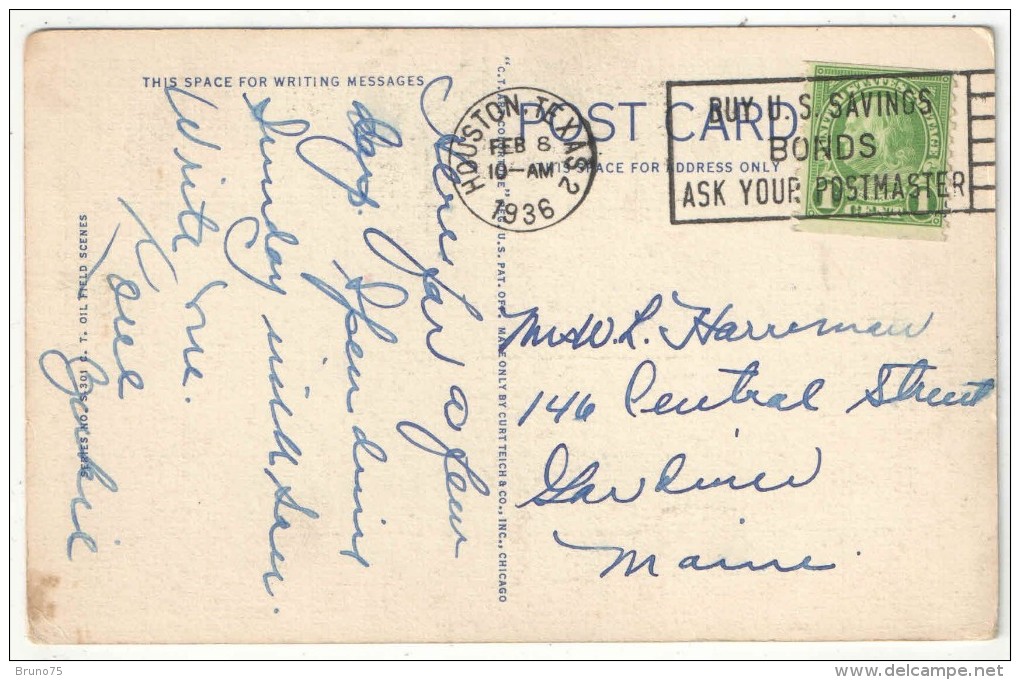 THIS SPACE FOR WRITING MESSAGES
Here for a few
days. Spending
Sunday with
Write me.
Love
POST CARD
THIS SPACE FOR ADDRESS ONLY
HOUSTON, TEXAS 2
FEB 8
10-AM
1936
BUY U.S. SAVINGS
BONDS
ASK YOUR POSTMASTER
W. L. Harriman
146 Central Street
Gardiner
Maine.
SERIES NO. S-301 C. T. OIL FIELD SCENES
REG. U.S. PAT. OFF. MADE ONLY BY CURT TEICH & CO., INC., CHICAGO
Bruno75
www.delcampe.net